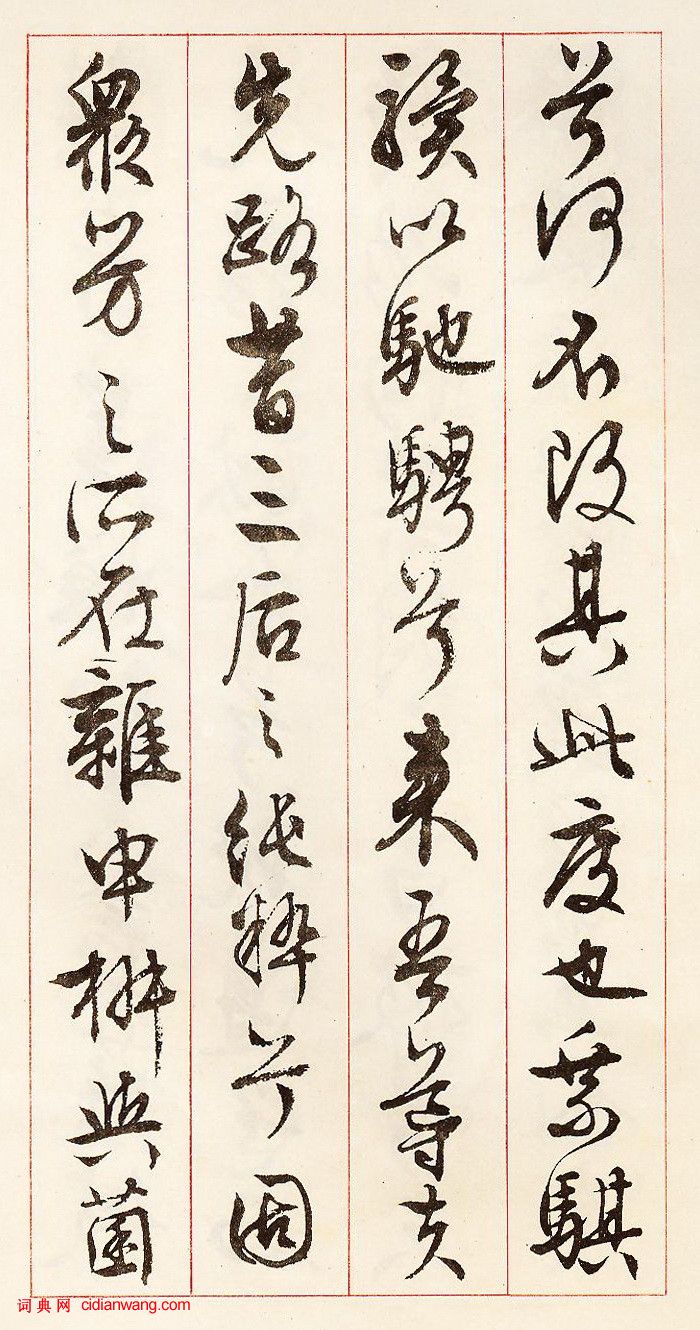 兮何不改其此度也乘騏
驥以馳騁兮來吾導夫
先路昔三后之純粹兮固
衆芳之所在雜申椒與菌
词典网 cidianwang.com